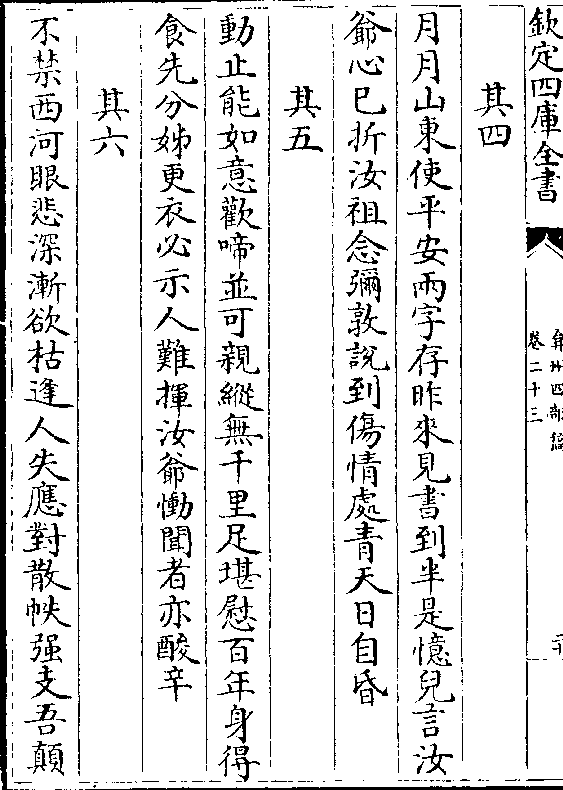 欽定四庫全書
弇州四部稿
卷二十三
其四
月月山東使平安兩字存昨來見書到半是憶兒言汝
爺心已折汝祖念彌敦說到傷情處青天日自昏
其五
動止能如意歡啼並可親縱無千里足堪慰百年身得
食先分姊更衣必示人難揮汝爺慟聞者亦酸辛
其六
不禁西河眼悲深漸欲枯逢人失應對散帙强支吾顛